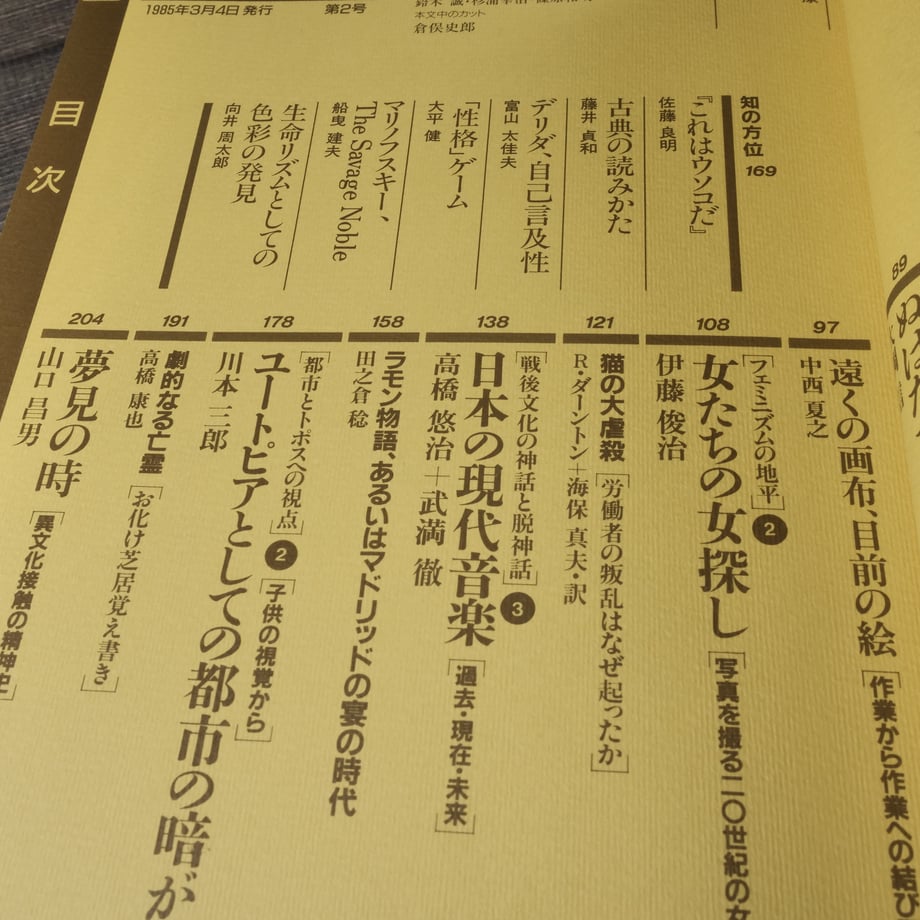 1985年3月4日発行
第2号
本文中のカット
倉俣史郎
目次
知の方位 169
『これはウソコだ』
佐藤 良明
古典の読みかた
藤井 貞和
デリダ、自己言及性
富山 太佳夫
「性格」ゲーム
大平 健
マリノフスキー、
The Savage Noble
船曳 建夫
生命リズムとしての
色彩の発見
向井 周太郎
89
97
遠くの画布、目前の絵
[作業から作業への結び
中西 夏之
108
[フェミニズムの地平]2
女たちの女探し
[写真を撮る二〇世紀の女
伊藤 俊治
121
猫の大虐殺 [労働者の叛乱はなぜ起ったか]
R・ダーントン+海保 真夫・訳
138
[戦後文化の神話と脱神話]3
日本の現代音楽 [過去・現在・未来]
高橋 悠治+武満 徹
158
ラモン物語、あるいはマドリッドの宴の時代
田之倉 稔
178
[都市とトポスへの視点]2 [子供の視覚から]
ユートピアとしての都市の暗が
川本 三郎
191
劇的なる亡霊 [お化け芝居覚え書き]
高橋 康也
204
夢見の時 [異文化接触の精神史]
山口 昌男